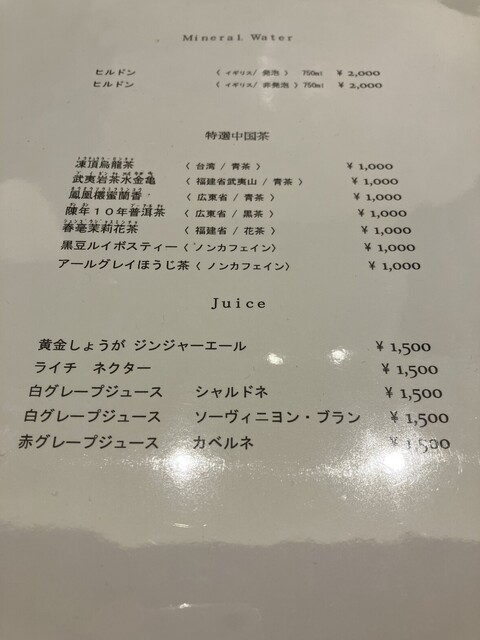 Mineral Water
ヒルドン 〈 イギリス/ 発泡 〉 750ml ¥ 2,000
ヒルドン 〈 イギリス/ 非発泡 〉 750ml ¥ 2,000
特選中国茶
凍頂烏龍茶 〈 台湾 / 青茶 〉 ¥ 1,000
武夷岩茶水金亀 〈 福建省武夷山 / 青茶 〉 ¥ 1,000
鳳凰欉蜜蘭香 〈 広東省 / 青茶 〉 ¥ 1,000
陳年10年普洱茶 〈 広東省 / 黒茶 〉 ¥ 1,000
春毫茉莉花茶 〈 福建省 / 花茶 〉 ¥ 1,000
黒豆ルイボスティー 〈 ノンカフェイン〉 ¥ 1,000
アールグレイほうじ茶 〈 ノンカフェイン〉 ¥ 1,000
Juice
黄金しょうが ジンジャーエール ¥ 1,500
ライチ ネクター ¥ 1,500
白グレープジュース シャルドネ ¥ 1,500
白グレープジュース ソーヴィニヨン・ブラン ¥ 1,500
赤グレープジュース カベルネ ¥ 1,500